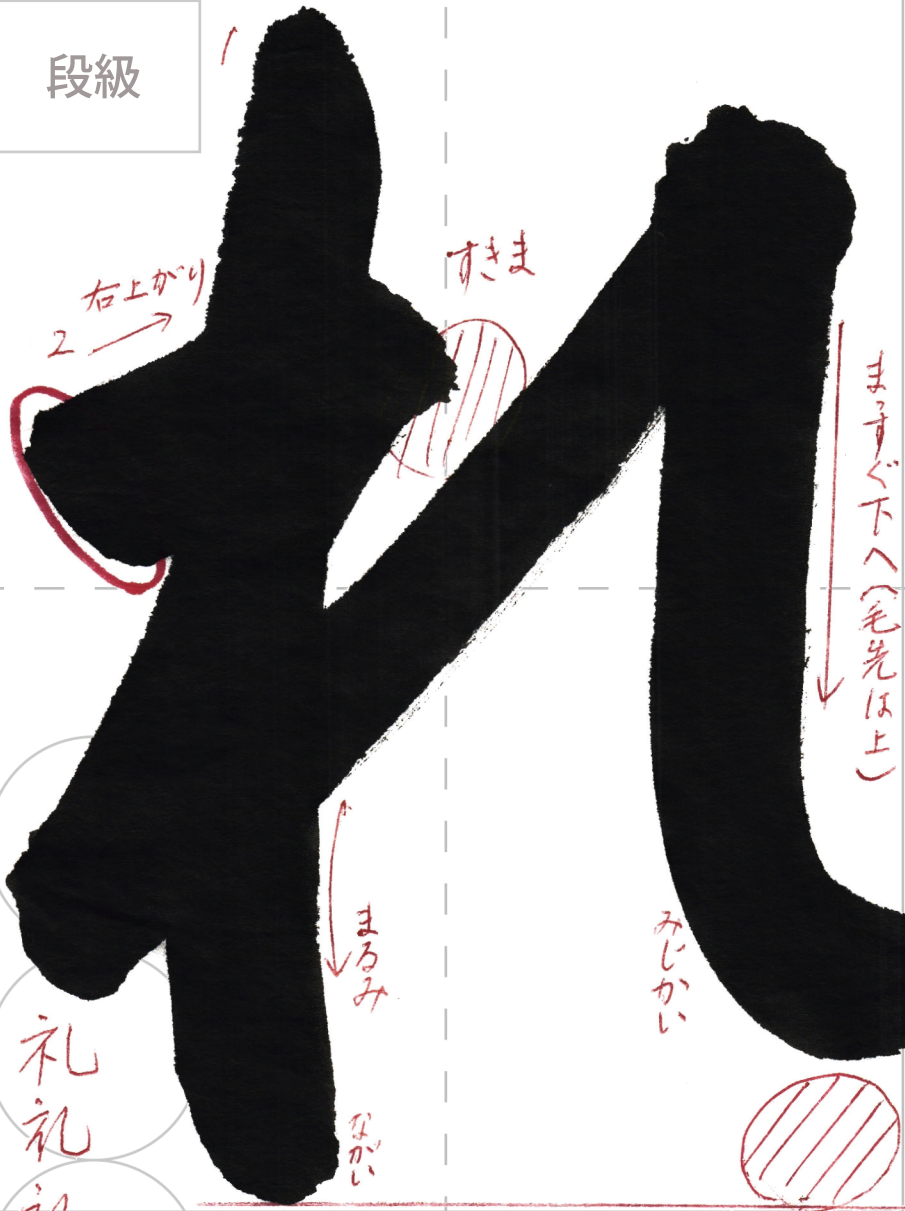 段級
れ
すきま
右上がり
2
まっすぐ下へ(毛先は上)
まるみ
みじかい
ながい
礼
礼